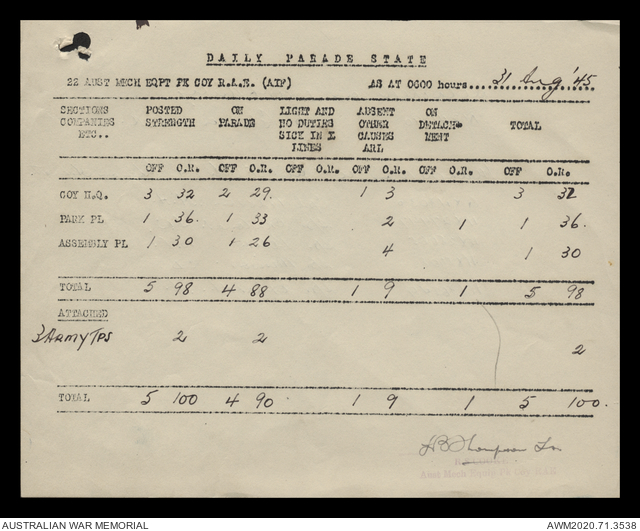 DAILY PARADE STATE
22 AUST MECH EQPT PK COY R.A.E. (AIF) AS AT 0600 hours.....31 Aug '45
SECTIONS POSTED ON LIGHT AND ABSENT ON
COMPANIES STRENGTH PARADE NO DUTIES OTHER DETACH- TOTAL
ETC.. SICK IN X CAUSES MENT
LINES ARL
OFF O.R. OFF O.R. OFF O.R. OFF O.R. OFF O.R. OFF O.R.
COY H.Q. 3 32 2 29. 1 3 3 32
PARK PL 1 36. 1 33 2 1 1 36.
ASSEMBLY PL 1 30 1 26 4 1 30
TOTAL 5 98 4 88 1 9 1 5 98
ATTACHED
3 ARMY TPS 2 2 2
TOTAL 5 100 4 90 1 9 1 5 100.
Aust Mech Equip Pk Coy RAE
AUSTRALIAN WAR MEMORIAL AWM2020.71.3538